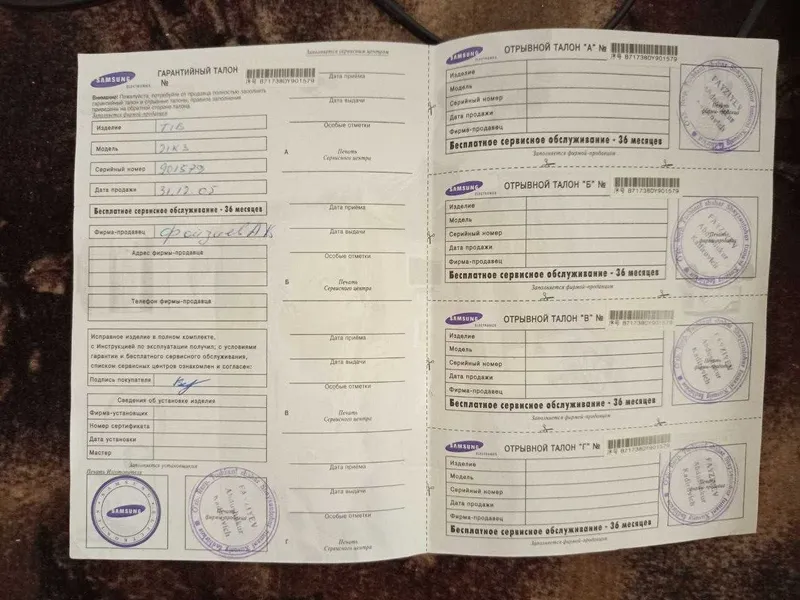 Заполняется сервисным центром
SAMSUNG
ELECTRONICS
ГАРАНТИЙНЫЙ ТАЛОН
№
序号 B71738DY901579
Внимание: Пожалуйста, потребуйте от продавца полностью заполнить
гарантийный талон и отрывные талоны, правила заполнения
приведены на обратной стороне талона.
Заполняется фирмой-продавцом
Изделие
Модель 21K3
Серийный номер 901579
Дата продажи 31.12.05
Бесплатное сервисное обслуживание - 36 месяцев
Фирма-продавец Файзиев А.К
Адрес фирмы-продавца
Телефон фирмы-продавца
Исправное изделие в полном комплекте,
с Инструкцией по эксплуатации получил; с условиями
гарантии и бесплатного сервисного обслуживания,
списком сервисных центров ознакомлен и согласен:
Подпись покупателя
Сведения об установке изделия
Фирма-установщик
Номер сертификата
Дата установки
Мастер
Заполняется установщиком
Печать Изготовителя
SAMSUNG
FAYZIYEV
Дата приёма
Дата выдачи
Особые отметки
А
Печать
Сервисного центра
Дата приёма
Дата выдачи
Особые отметки
Б
Печать
Сервисного центра
Дата приёма
Дата выдачи
Особые отметки
В
Печать
Сервисного центра
Дата приёма
Дата выдачи
Особые отметки
Г
Печать
Сервисного центра
SAMSUNG
ELECTRONICS
ОТРЫВНОЙ ТАЛОН "А" №
序号 B71738DY901579
Изделие
Модель
Серийный номер
Дата продажи
Фирма-продавец
Бесплатное сервисное обслуживание - 36 месяцев
Заполняется фирмой-продавцом
FAYZIYEV
SAMSUNG
ELECTRONICS
ОТРЫВНОЙ ТАЛОН "Б" №
序号 B71738DY901579
Изделие
Модель
Серийный номер
Дата продажи
Фирма-продавец
Бесплатное сервисное обслуживание - 36 месяцев
Заполняется фирмой-продавцом
SAMSUNG
ELECTRONICS
ОТРЫВНОЙ ТАЛОН "В" №
序号 B71738DY901579
Изделие
Модель
Серийный номер
Дата продажи
Фирма-продавец
Бесплатное сервисное обслуживание - 36 месяцев
Заполняется фирмой-продавцом
SAMSUNG
ELECTRONICS
ОТРЫВНОЙ ТАЛОН "Г" №
序号 B71738DY901579
Изделие
Модель
Серийный номер
Дата продажи
Фирма-продавец
Бесплатное сервисное обслуживание - 36 месяцев
Заполняется фирмой-продавцом
FAYZIYEV